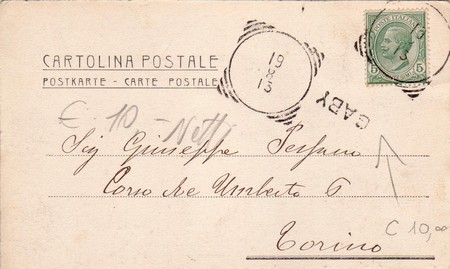 CARTOLINA POSTALE
POSTKARTE - CARTE POSTALE
19
8
13
GABY
POSTE ITALIANE
5 5
€ 10 - Netti
Sig Giuseppe
Corso Re Umberto 6
Torino
€ 10,00